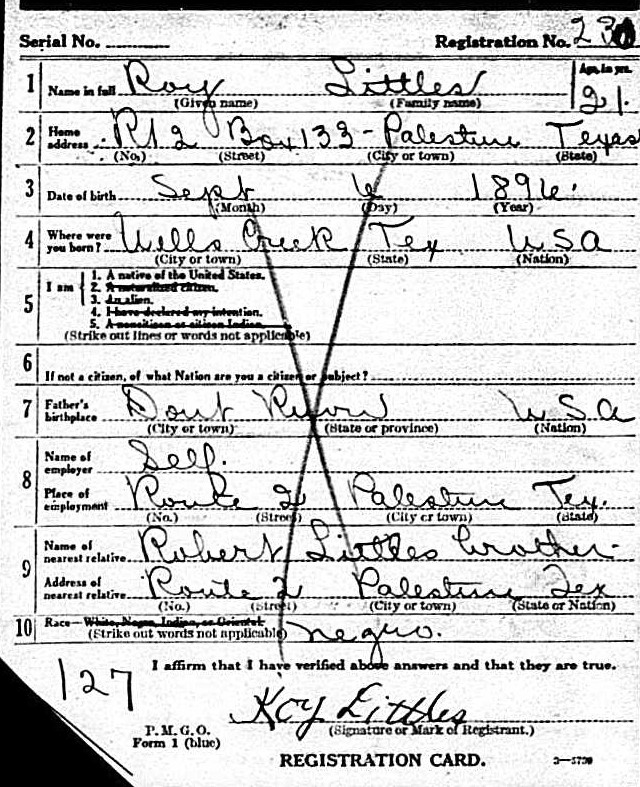 Serial No. Registration No. 230
1 Name in full Roy Littles Age, in yrs. 21.
(Given name) (Family name)
2 Home address Rt 2 Box 133 - Palestine Texas
(No.) (Street) (City or town) (State)
3 Date of birth Sept 6 1896.
(Month) (Day) (Year)
4 Where were you born? Wells Creek Tex U S A
(City or town) (State) (Nation)
5 I am
1. A native of the United States.
2. A naturalized citizen.
3. An alien.
4. I have declared my intention.
5. A noncitizen or citizen Indian.
(Strike out lines or words not applicable)
6 If not a citizen, of what Nation are you a citizen or subject?
7 Father's birthplace Dont Know U S A
(City or town) (State or province) (Nation)
8 Name of employer Self.
Place of employment Route 2 Palestine Tex.
(No.) (Street) (City or town) (State)
9 Name of nearest relative Robert Littles brother.
Address of nearest relative Route 2 Palestine Tex
(No.) (Street) (City or town) (State or Nation)
10 Race—White, Negro, Indian, or Oriental
(Strike out words not applicable) negro.
I affirm that I have verified above answers and that they are true.
127
Roy Littles
P. M. G. O. (Signature or Mark of Registrant.)
Form 1 (blue)
REGISTRATION CARD. 3—5739